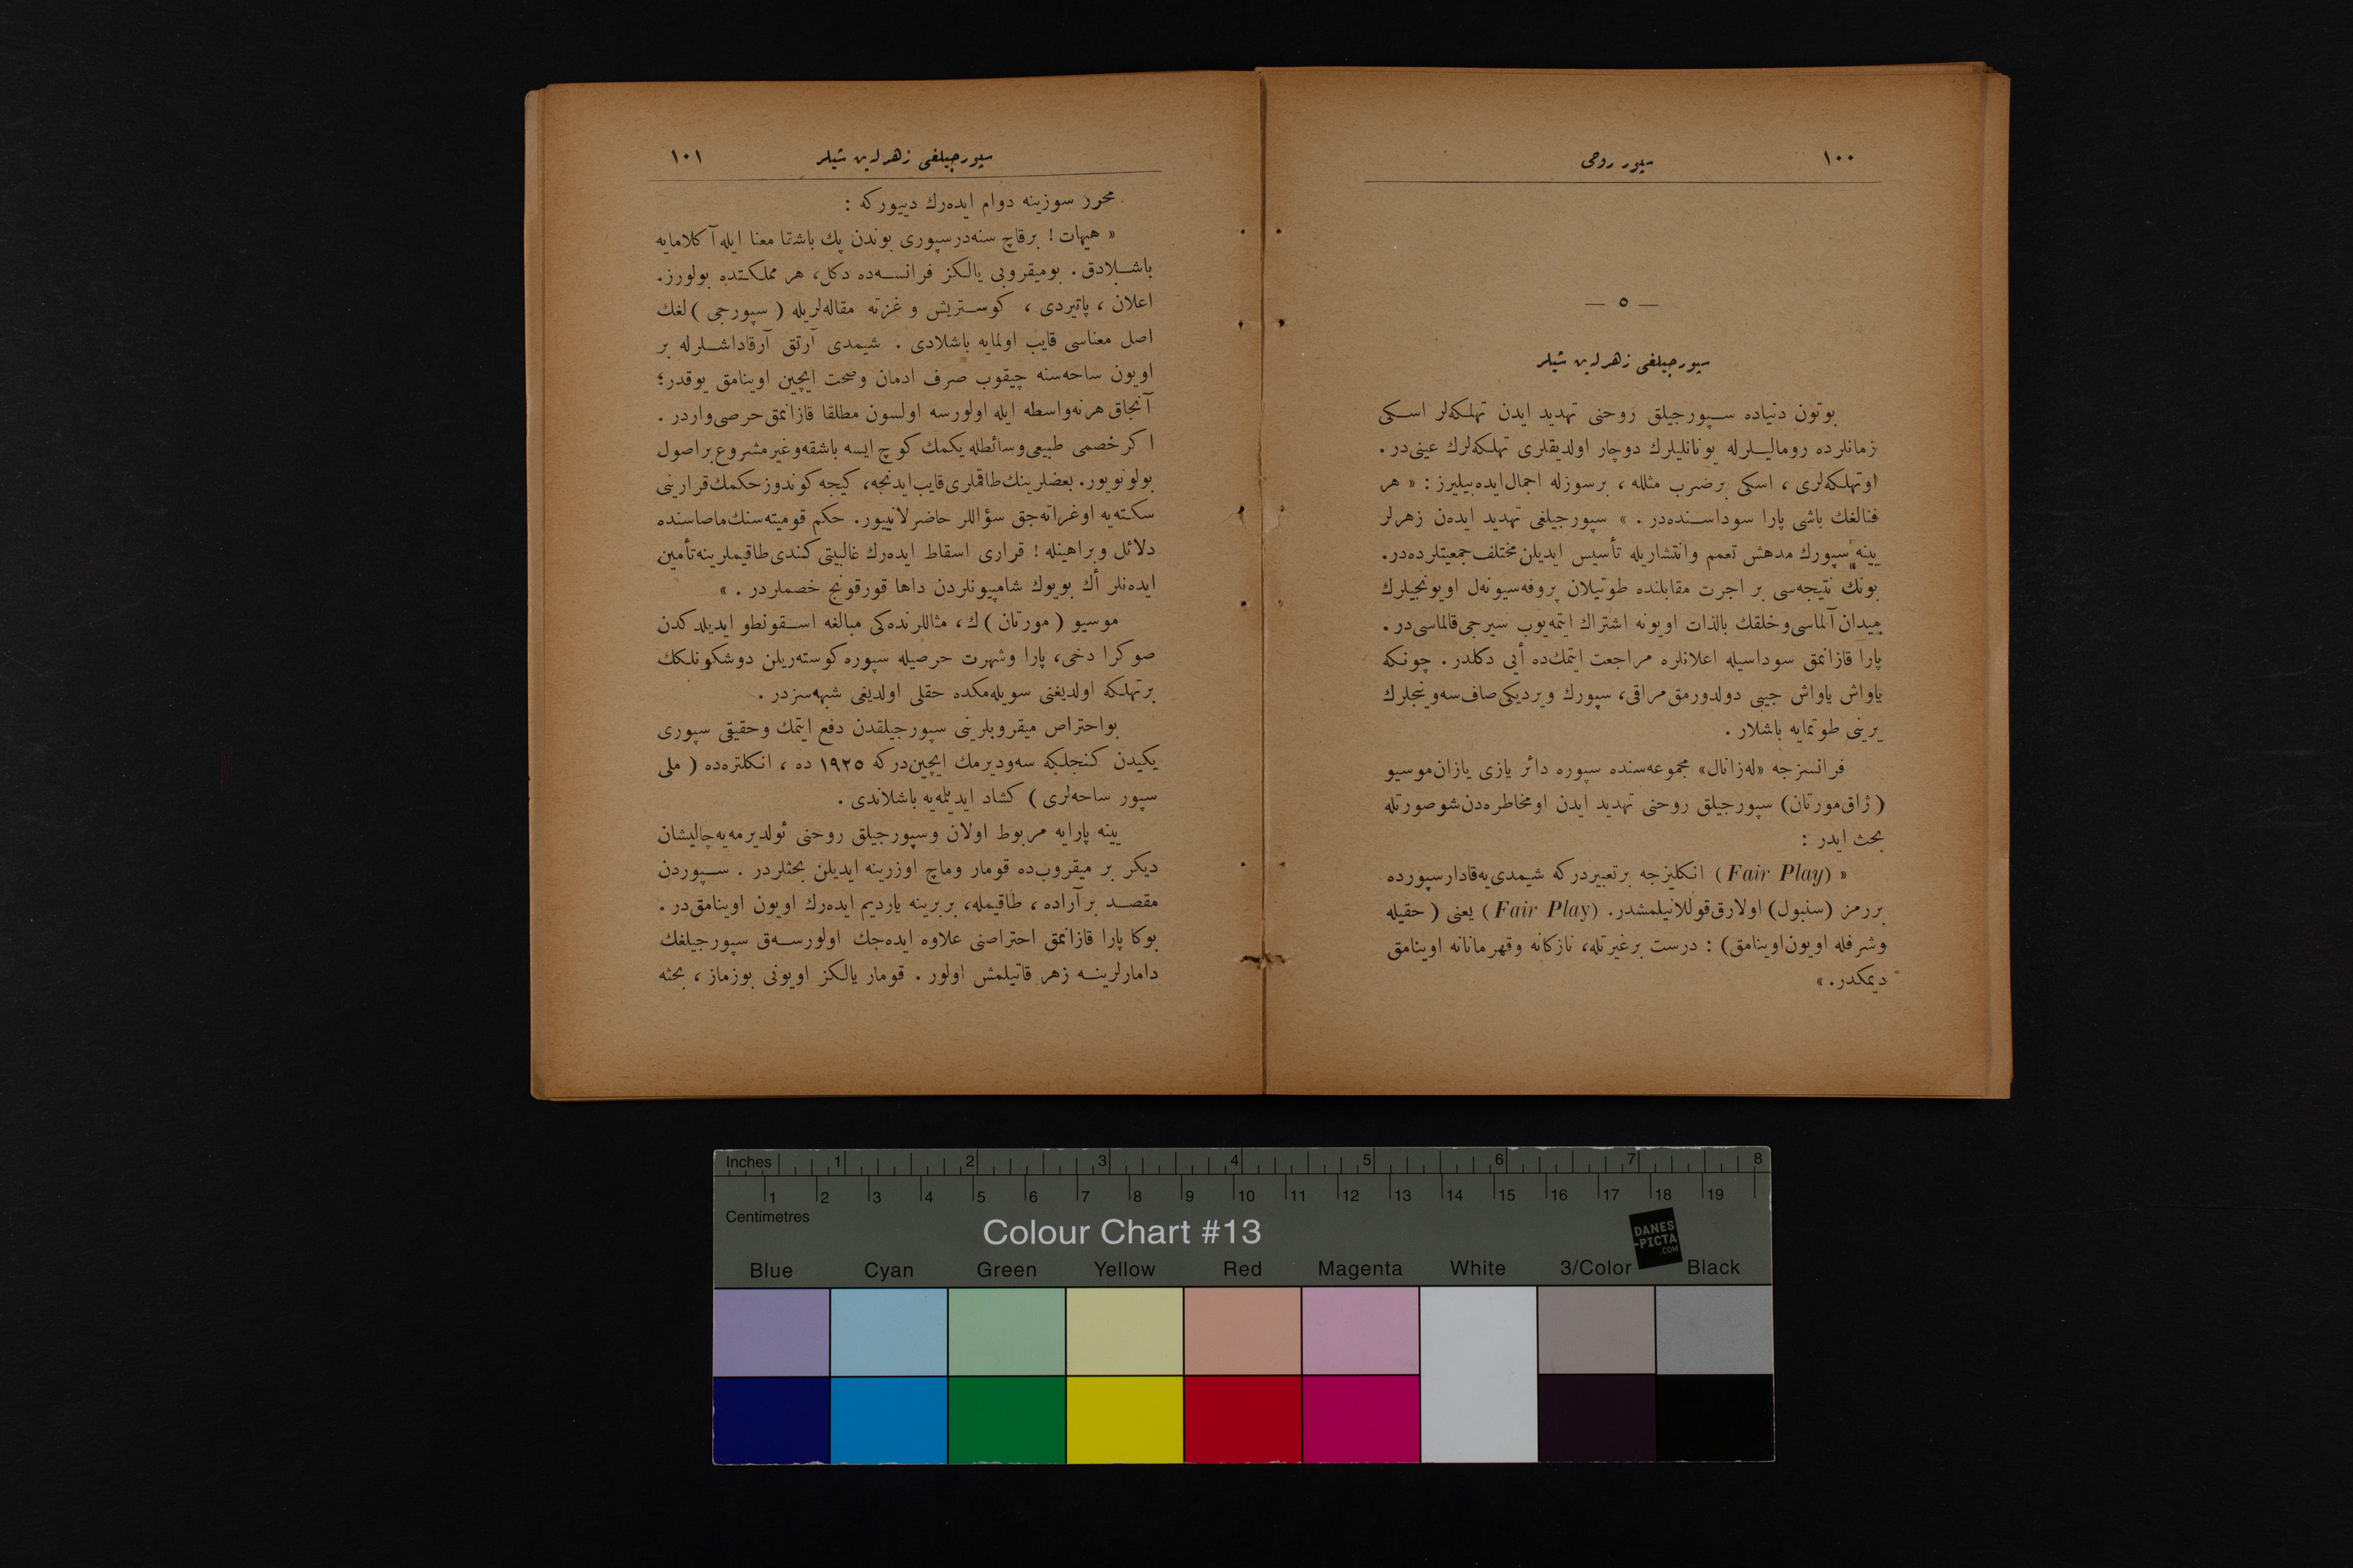 ١٠٠
سپور روحی
— ٥ —
سپورجیلغی زهرله‌ین شیلر
بوتون دنیاده سپورجیلق روحنی تهدید ایدن تهلکه‌لر اسکی
زمانلرده رومالیلرله یونانلیلرك دوچار اولدیقلری تهلکه‌لرك عینی‌در.
اوتهلکه‌لری ، اسکی برضرب مثلله ، برسوزله اجمال‌ایده‌بیلیرز : « هر
فنالغك باشی پارا سوداسنده‌در . » سپورجیلغی تهدید ایده‌ن زهرلر
یینه سپورك مدهش تعمم وانتشاریله تأسیس ایدیلن مختلف جمعیتلرده‌در.
بونك نتیجه‌سی بر اجرت مقابلنده طوتیلان پروفه‌سیونه‌ل اویونجیلرك
میدان آلماسی وخلقك بالذات اویونه اشتراك ایتمه‌یوب سیرجی قالماسی‌در.
پارا قازانمق سوداسیله اعلانلره مراجعت ایتمك‌ده أیی دکلدر. چونکه
یاواش یاواش جیبی دولدورمق مراقی، سپورك ویردیکی صاف سه‌وینجلرك
یرینی طوتمایه باشلار .
فرانسزجه «له‌زانال» مجموعه‌سنده سپوره دائر یازی یازان موسیو
( ژاق مورتان) سپورجیلق روحنی تهدید ایدن اومخاطره‌دن شوصورتله
بحث ایدر :
« (Fair Play) انکلیزجه برتعبیردرکه شیمدی‌یه قادار سپورده
بررمز (سنبول) اولارق قوللانیلمشدر. (Fair Play) یعنی ( حقیله
وشرفله اویون اوینامق) : درست برغیرتله، نازکانه وقهرمانانه اوینامق
دیمکدر. »
١٠١
سپورجیلغی زهرله‌ین شیلر
محرر سوزینه دوام ایده‌رك دییورکه :
« هیهات ! برقاچ سنه‌درسپوری بوندن پك باشقا معنا ایله آکلامایه
باشلادق . بومیقروبی یالکز فرانسه‌ده دکل، هر مملکتده بولورز.
اعلان ، پاتیردی ، کوستریش و غزته مقاله‌لریله ( سپورجی ) لغك
اصل معناسی قایب اولمایه باشلادی . شیمدی آرتق آرقاداشلرله بر
اویون ساحه‌سنه چیقوب صرف ادمان وصحت ایچین اوینامق یوقدر؛
آنجاق هرنه‌واسطه ایله اولورسه اولسون مطلقا قازانمق حرصی واردر .
اکر خصمی طبیعی وسائطله یکمك کوچ ایسه باشقه وغیرمشروع براصول
بولونویور. بعضلرینك طاقملری قایب ایدنجه، کیجه کوندوز حکمك قرارینی
سکته‌یه اوغراته‌جق سؤاللر حاضرلانییور. حکم قومیته‌سنك ماصاسنده
دلائل وبراهینله ! قراری اسقاط ایده‌رك غالبیتی کندی طاقیملرینه تأمین
ایده‌نلر أك بویوك شامپیونلردن داها قورقونج خصملردر . »
موسیو ( مورتان ) ك، مثاللرنده‌کی مبالغه اسقونطو ایدیلدکدن
صوکرا دخی، پارا وشهرت حرصیله سپوره کوسته‌ریلن دوشکونلکك
برتهلکه اولدیغنی سویله‌مکده حقلی اولدیغی شبهه‌سزدر .
بواحتراص میقروبلرینی سپورجیلقدن دفع ایتمك وحقیقی سپوری
یکیدن کنجلکه سه‌ودیرمك ایچین‌درکه ١٩٢٥ ده ، انکلتره‌ده ( ملی
سپور ساحه‌لری ) کشاد ایدیلمه‌یه باشلاندی .
یینه پارایه مربوط اولان وسپورجیلق روحنی ئولدیرمه‌یه چالیشان
دیکر بر میقروب‌ده قومار وماچ اوزرینه ایدیلن بحثلردر . سپوردن
مقصد برآراده ، طاقیمله، بربرینه یاردیم ایده‌رك اویون اوینامق‌در .
بوکا پارا قازانمق احتراصنی علاوه ایده‌جك اولورسه‌ق سپورجیلغك
دامارلرینه زهر قاتیلمش اولور . قومار یالکز اویونی بوزماز ، بحثه
Inches 1 2 3 4 5 6 7 8
1 2 3 4 5 6 7 8 9 10 11 12 13 14 15 16 17 18 19
Centimetres
Colour Chart #13
DANES
-PICTA
.COM
Blue Cyan Green Yellow Red Magenta White 3/Color Black